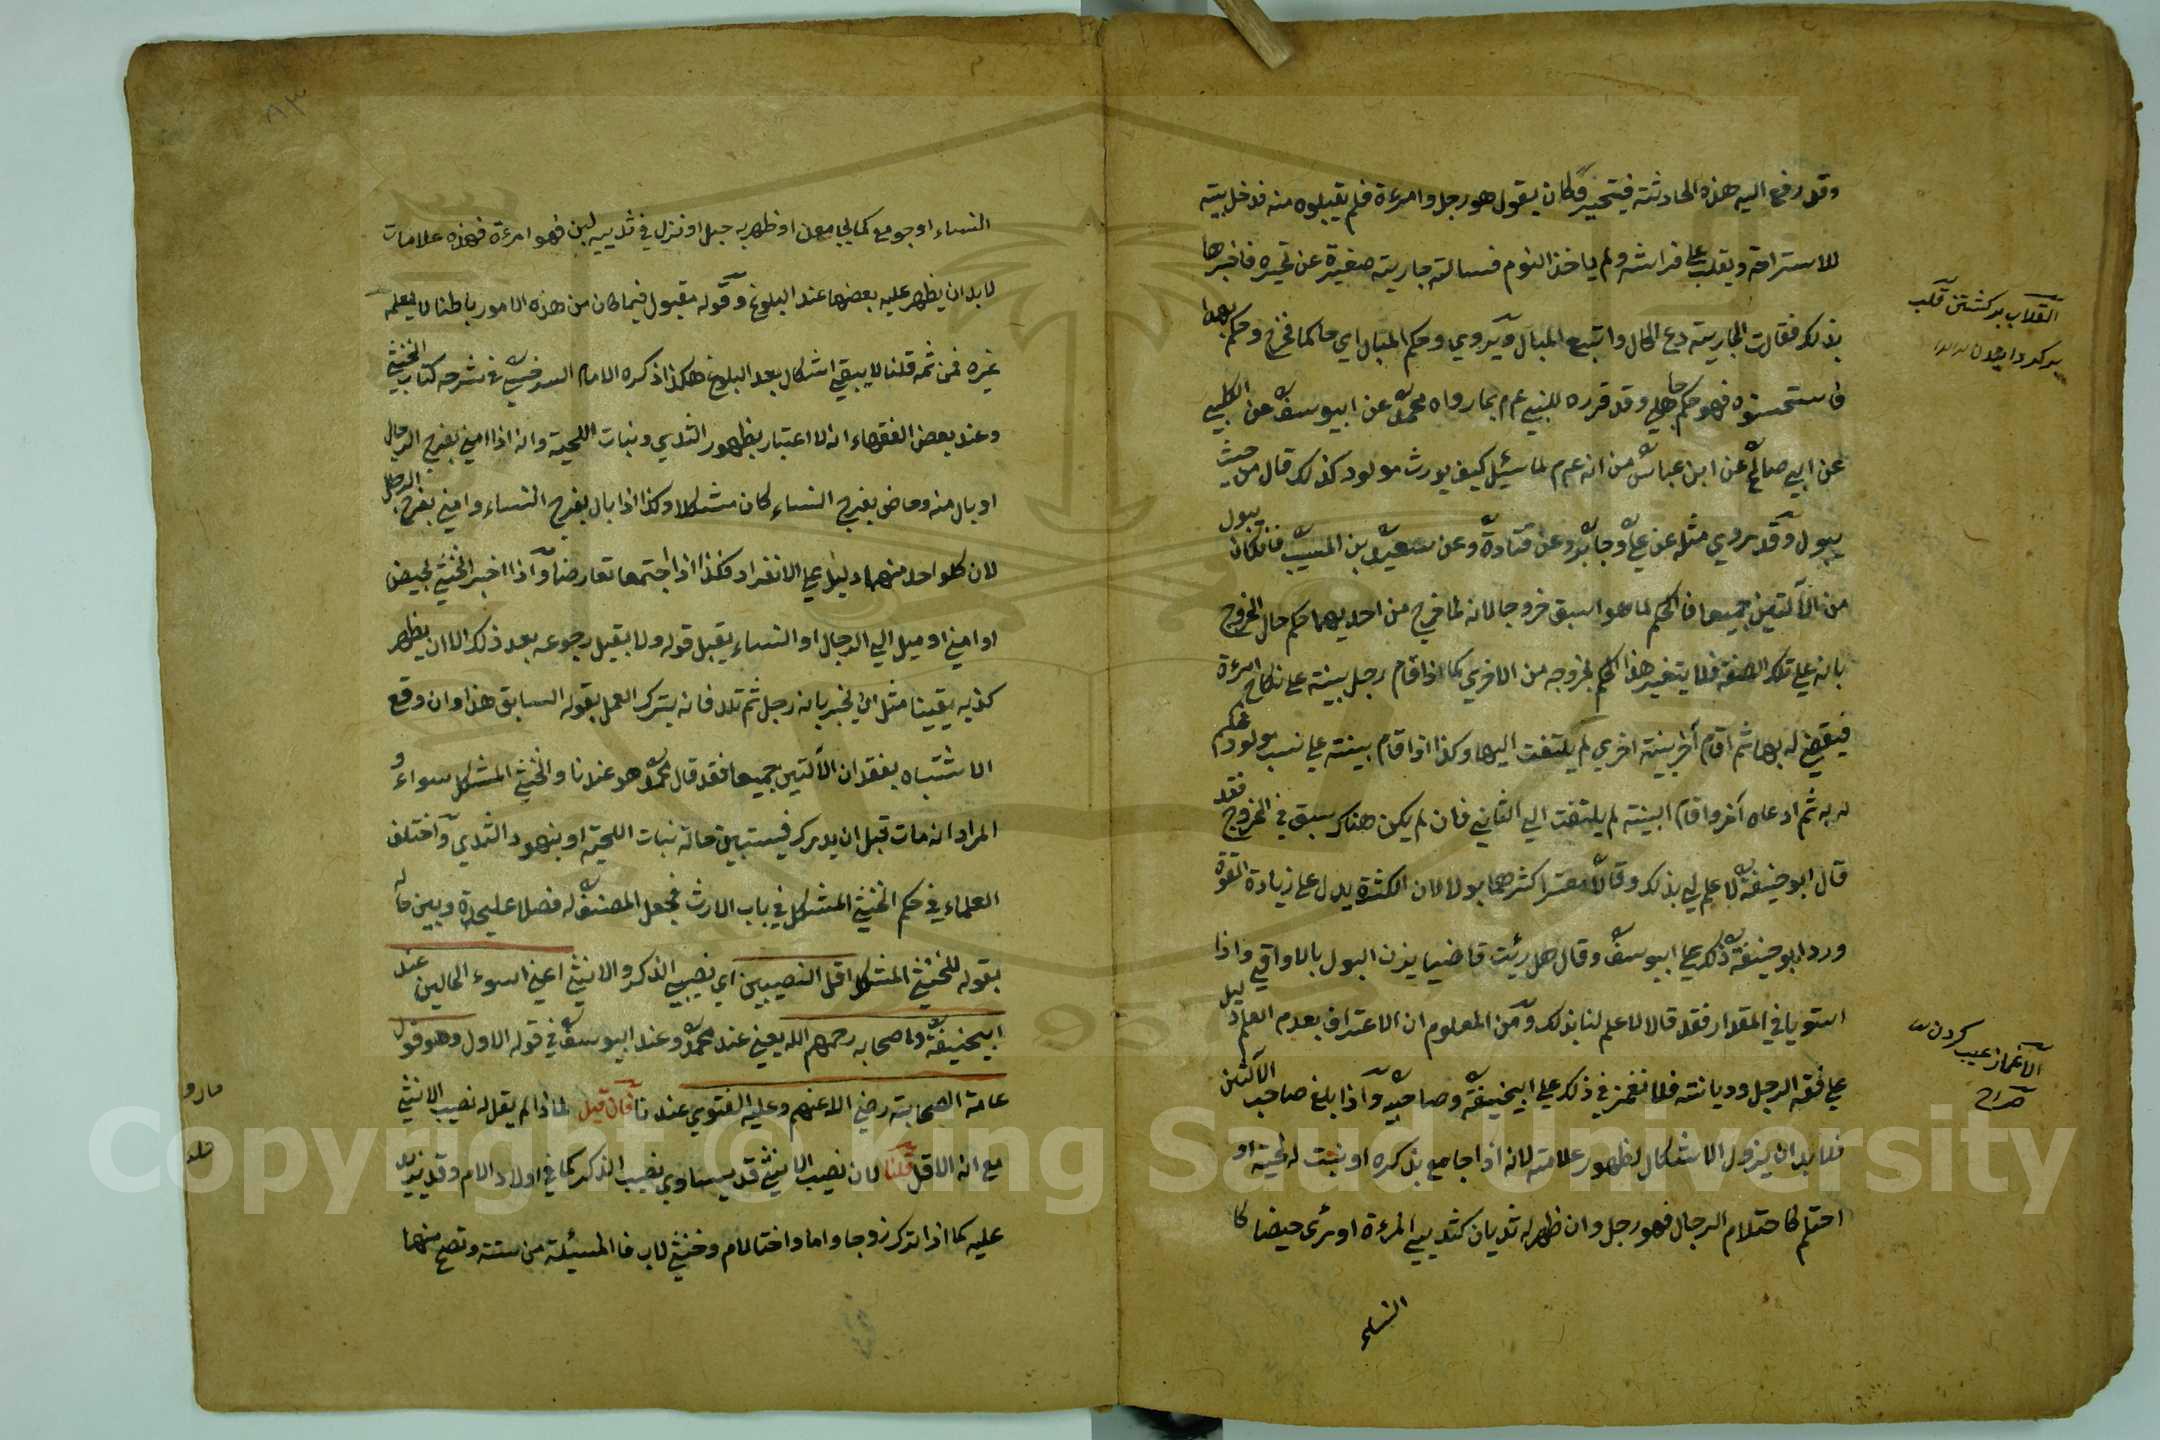 وقد رفع اليه هذه الحادثة فيتحير فكان يقول هو رجل وامرءة فلم يقبلوه منه فدخل بيته
للاستراحة ويقلب علي فراشه ولم ياخذ النوم فسالته جارية صغيرة عن تحيره فاخبرها
بذلك فقالت الجارية دع الحال واتبع المبال ويروي وحكم المبال اي حاكما فخرج وحكم بهوا
فاستحسنوه فهو حكم جاهلي وقد قرره للنبي ع م بما رواه محمد عن ابيوسف عن الكلبي
عن ابي صالح عن ابن عباس من انه ع م لما سئل كيف يورث مولود كذلك قال من حيث
يبول وقد روي مثله عن علي وجابر وعن قتادة وعن سعيد بن المسيب فانكان يبول
من الآلتين جميعا فالحكم لما هو اسبق خروجا لانه لما خرج من احديهما حكم حال الخروج
بانه علي تلك الصفة فلا يتغير هذا الحكم بخروجه من الاخري كما اذا اقام رجل بينة علي نكاح امرءة
فيقضي له بها ثم اقام آخر بينة اخري لم يلتفت اليها وكذا اذا اقام بينة علي نسب مولود فحكم
له به ثم ادعاه آخر واقام البينة لم يلتفت الي الثاني فان لم يكن هناك سبق في الخروج فقد
قال ابو حنيفة لا علم لي بذلك وقالا يعتبر اكثرهما بولا لان الكثرة يدل علي زيادة القوة
ورد ابو حنيفة ذلك علي ابيوسف وقال هل رئيت قاضيا يزن البول بالاواقي واذا
استويا في المقدار فقد قالا لا علم لنا بذلك ومن المعلوم ان الاعتراف بعدم العلم دليل
علي فقه الرجل وديانته فلا نغمز في ذلك علي ابيحنيفة وصاحبيه واذا بلغ صاحب الآلتين
فلا بد ان يزول الاشكال لظهور علامة لانه اذا جامع بذكره او نبتت له لحية او
احتلم كاحتلام الرجال فهو رجل وان ظهر له ثديان كثديي المرءة او رئى حيضا كا
النساء
التقلاب بر كشتن قلب
الاغماز عيب كردن
صراح
النساء او جومع كما يجامعن او ظهر به حبل او نزل في ثدييه لبن فهو امرءة فهذه علامات
لا بد ان يظهر عليه بعضها عند البلوغ وقوله مقبول فيما كان من هذه الامور باطنا لا يعلمه
غيره فمن ثمه قلنا لا يبقي اشكال بعد البلوغ هكذا ذكره الامام السرخسي في شرحه كتاب الخنثي
وعند بعض الفقهاء انه لا اعتبار بظهور الثدي ونبات اللحية وانه اذا امني بفرج الرجال
او بال منه وحاض بفرج النساء كان مشكلا وكذا اذا بال بفرج النساء وامني بفرج الرجل
لان كلواحد منهما دليل علي الانفراد فكذا اذا اجتمعا تعارضا واذا اخبر الخنثي بحيض
او امني او ميل الي الرجال او النساء يقبل قوله ولا يقبل رجوعه بعد ذلك الا ان يظهر
كذبه يقينا مثل ان يخبر بانه رجل ثم تلد فانه يترك العمل بقوله السابق هذا وان وقع
الاشتباه بفقدان الآلتين جميعا فقد قال محمد هو عندنا والخنثي المشكل سواء و
المراد انه مات قبل ان يدرك فيستبين حاله نبات اللحية او بنهود الثدي واختلف
العلماء في حكم الخنثي المشكل في باب الارث فجعل المصنف له فصلا عليحدة وبين حاله
بقوله للخنثي المشكل اقل النصيبين اي نصيبي الذكر والانثي اعني اسوء الحالين عند
ابيحنيفة واصحابه رحمهم الله يعني عند محمد وعند ابيوسف في قوله الاول وهو قول
عامة الصحابة رضي الله عنهم وعليه الفتوي عندنا فان قيل لماذا لم يقل له نصيب الانثي
مع انه الاقل قلنا لان نصيب الانثي قد يساوي نصيب الذكر كما في اولاد الام وقد يزيد
عليه كما اذا ترك زوجا واما واختا لام وخنثي لاب فالمسئلة من ستة وتصح منها
٨٣
Copyright © King Saud University
1957